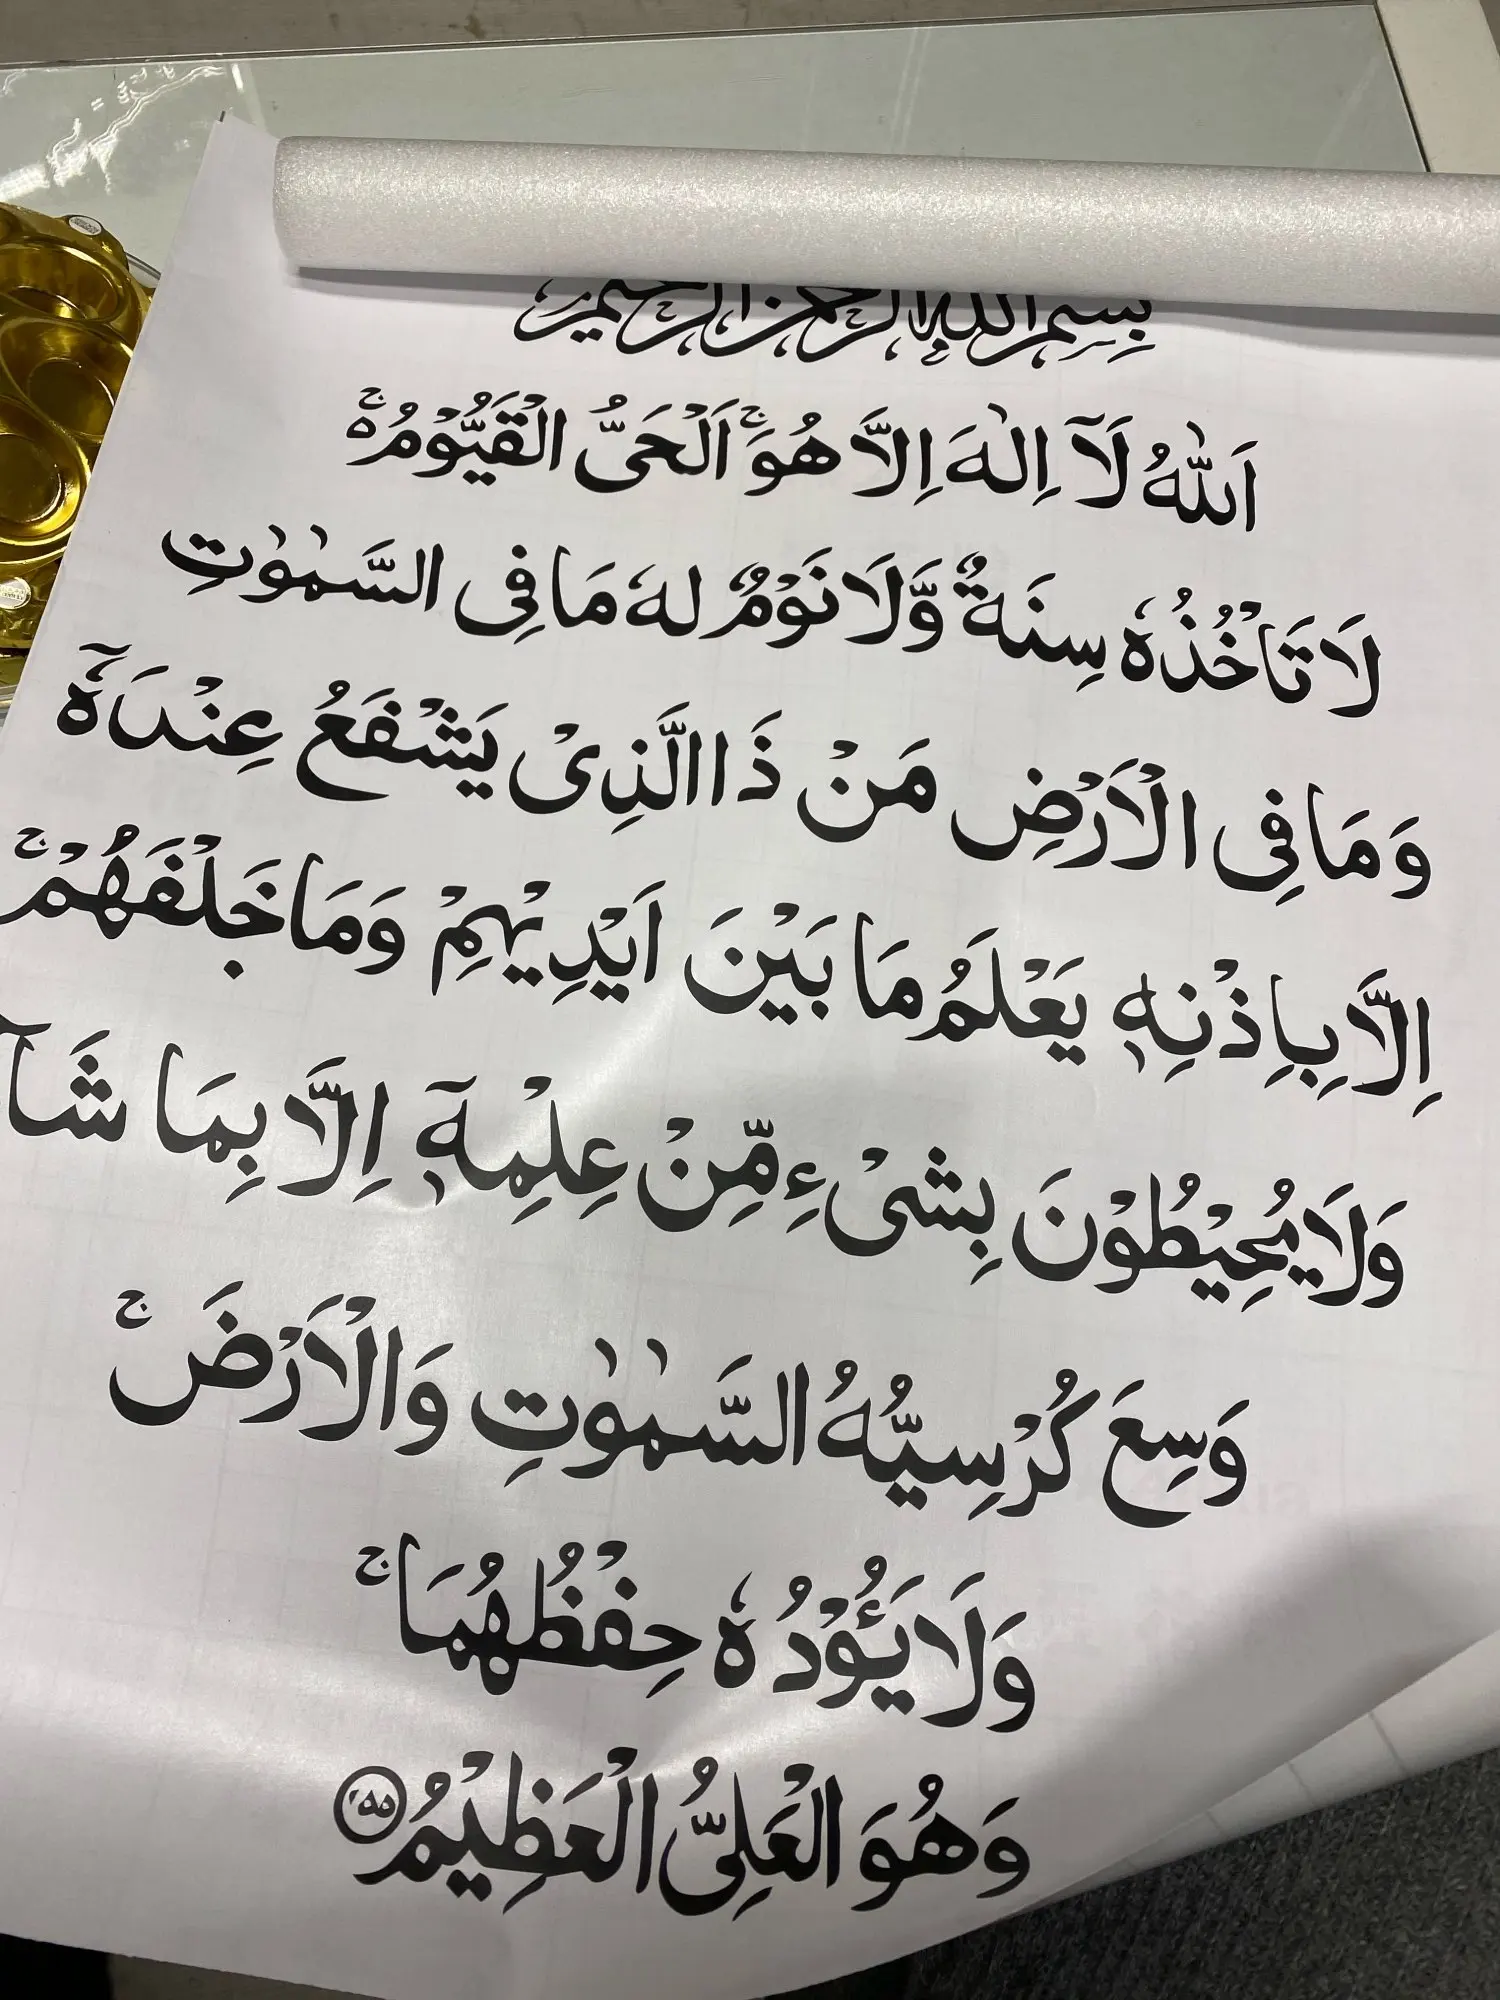 بِسْمِ اللهِ الرَّحْمٰنِ الرَّحِيْمِ
اَللّٰهُ لَآ اِلٰهَ اِلَّا هُوَ ۚ اَلْحَیُّ الْقَيُّوْمُ ەۚ
لَا تَاْخُذُهٗ سِنَةٌ وَّلَا نَوْمٌ لهٗ مَا فِی السَّمٰوٰتِ
وَمَا فِی الْاَرْضِ مَنْ ذَا الَّذِیْ يَشْفَعُ عِنْدَهٗٓ
اِلَّا بِاِذْنِهٖ يَعْلَمُ مَا بَيْنَ اَيْدِيْهِمْ وَمَا خَلْفَهُمْ ۚ
وَلَا يُحِيْطُوْنَ بِشَیْءٍ مِّنْ عِلْمِهٖٓ اِلَّا بِمَا شَآ
وَسِعَ كُرْسِيُّهُ السَّمٰوٰتِ وَالْاَرْضَ ۚ
وَلَا يَـُٔوْدُهٗ حِفْظُهُمَا ۚ
وَهُوَ الْعَلِیُّ الْعَظِيْمُ ۲۵۵